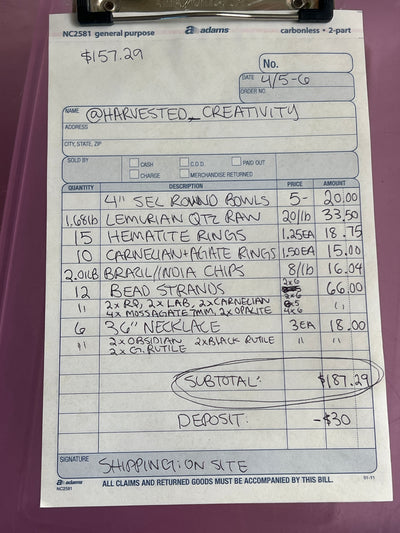 NC2581 general purpose adams carbonless • 2-part
$157.29
No.
DATE 4/5-6
ORDER NO.
NAME @HARVESTED_CREATIVITY
ADDRESS
CITY, STATE, ZIP
SOLD BY CASH C.O.D. PAID OUT
CHARGE MERCHANDISE RETURNED
QUANTITY DESCRIPTION PRICE AMOUNT
4" SEL ROUND BOWLS 5- 20.00
1.68lb LEMURIAN QTZ RAW 20/lb 33.50
15 HEMATITE RINGS 1.25EA 18.75
10 CARNELIAN+AGATE RINGS 1.50EA 15.00
2.01LB BRAZIL/INDIA CHIPS 8/lb 16.04
12 BEAD STRANDS 2x6 66.00
" 2x RQ, 2x LAB, 2x CARNELIAN 2x6
4x MOSSAGATE 7MM, 2x OPALITE 4x6 "
6 36" NECKLACE 3EA 18.00
" 2x OBSIDIAN 2x BLACK RUTILE " "
2x G. RUTILE
SUBTOTAL: $187.29
DEPOSIT: -$30
SIGNATURE SHIPPING: ON SITE
adams
NC2581 ALL CLAIMS AND RETURNED GOODS MUST BE ACCOMPANIED BY THIS BILL. 01-11